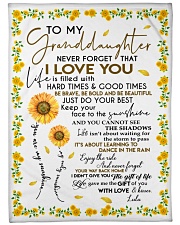 TO MY
Granddaughter
NEVER FORGET THAT
I LOVE YOU
life is filled with
HARD TIMES & GOOD TIMES
BE BRAVE, BE BOLD AND BE BEAUTIFUL
JUST DO YOUR BEST
Keep your
face to the sunshine
AND YOU CANNOT SEE
THE SHADOWS
Life isn't about waiting for
the storm to pass
IT'S ABOUT LEARNING TO
DANCE IN THE RAIN
Enjoy the ride
And never forget
YOUR WAY BACK HOME
I DIDN'T GIVE YOU The gift of life
Life gave me the GIFT of you
WITH LOVE & kisses
You are my sunshine